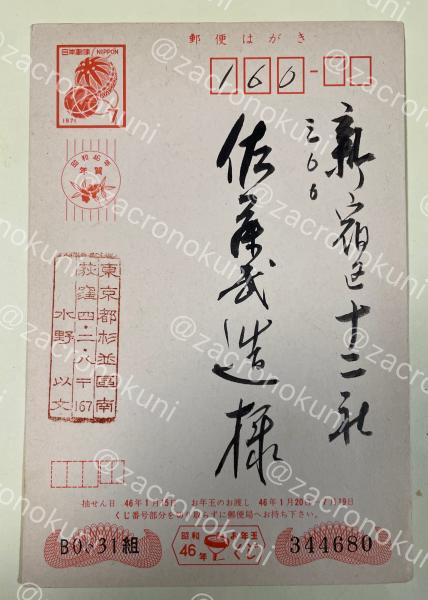 郵便はがき
日本郵便 NIPPON
7
1971
昭和46年
年賀
160
新宿区十二社
三六六
佐藤武造様
東京都杉並区南
荻窪四・二八・八〒167
水野以文
抽せん日 46年1月15日 お年玉のお渡し 46年1月20日 7月19日
くじ番号部分を切り取らずに郵便局へお持ち下さい。
B0831組
昭和46年 お年玉くじ
344680
@zacronokuni